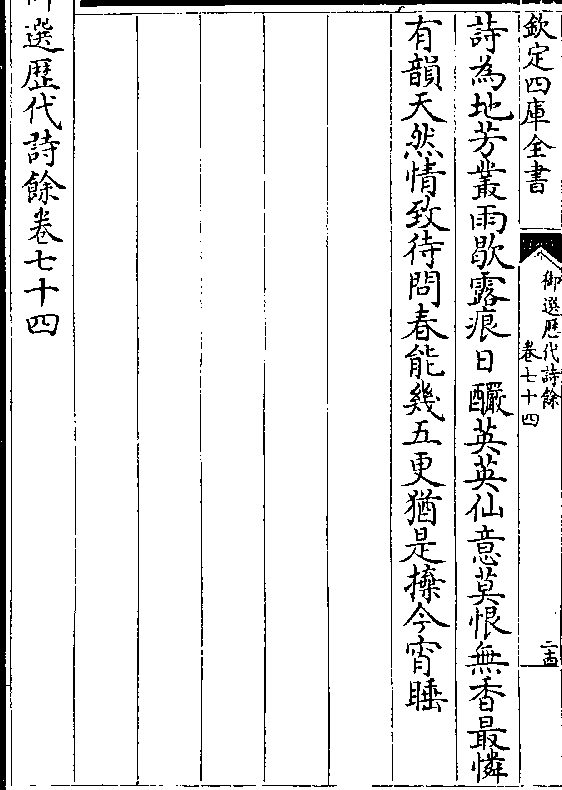 欽定四庫全書
御選歷代詩餘
卷七十四
二十四
詩為地芳叢雨歇露痕日釅英英仙意莫恨無香最憐
有韻天然情致待問春能幾五更猶是今宵睡
御選歷代詩餘卷七十四